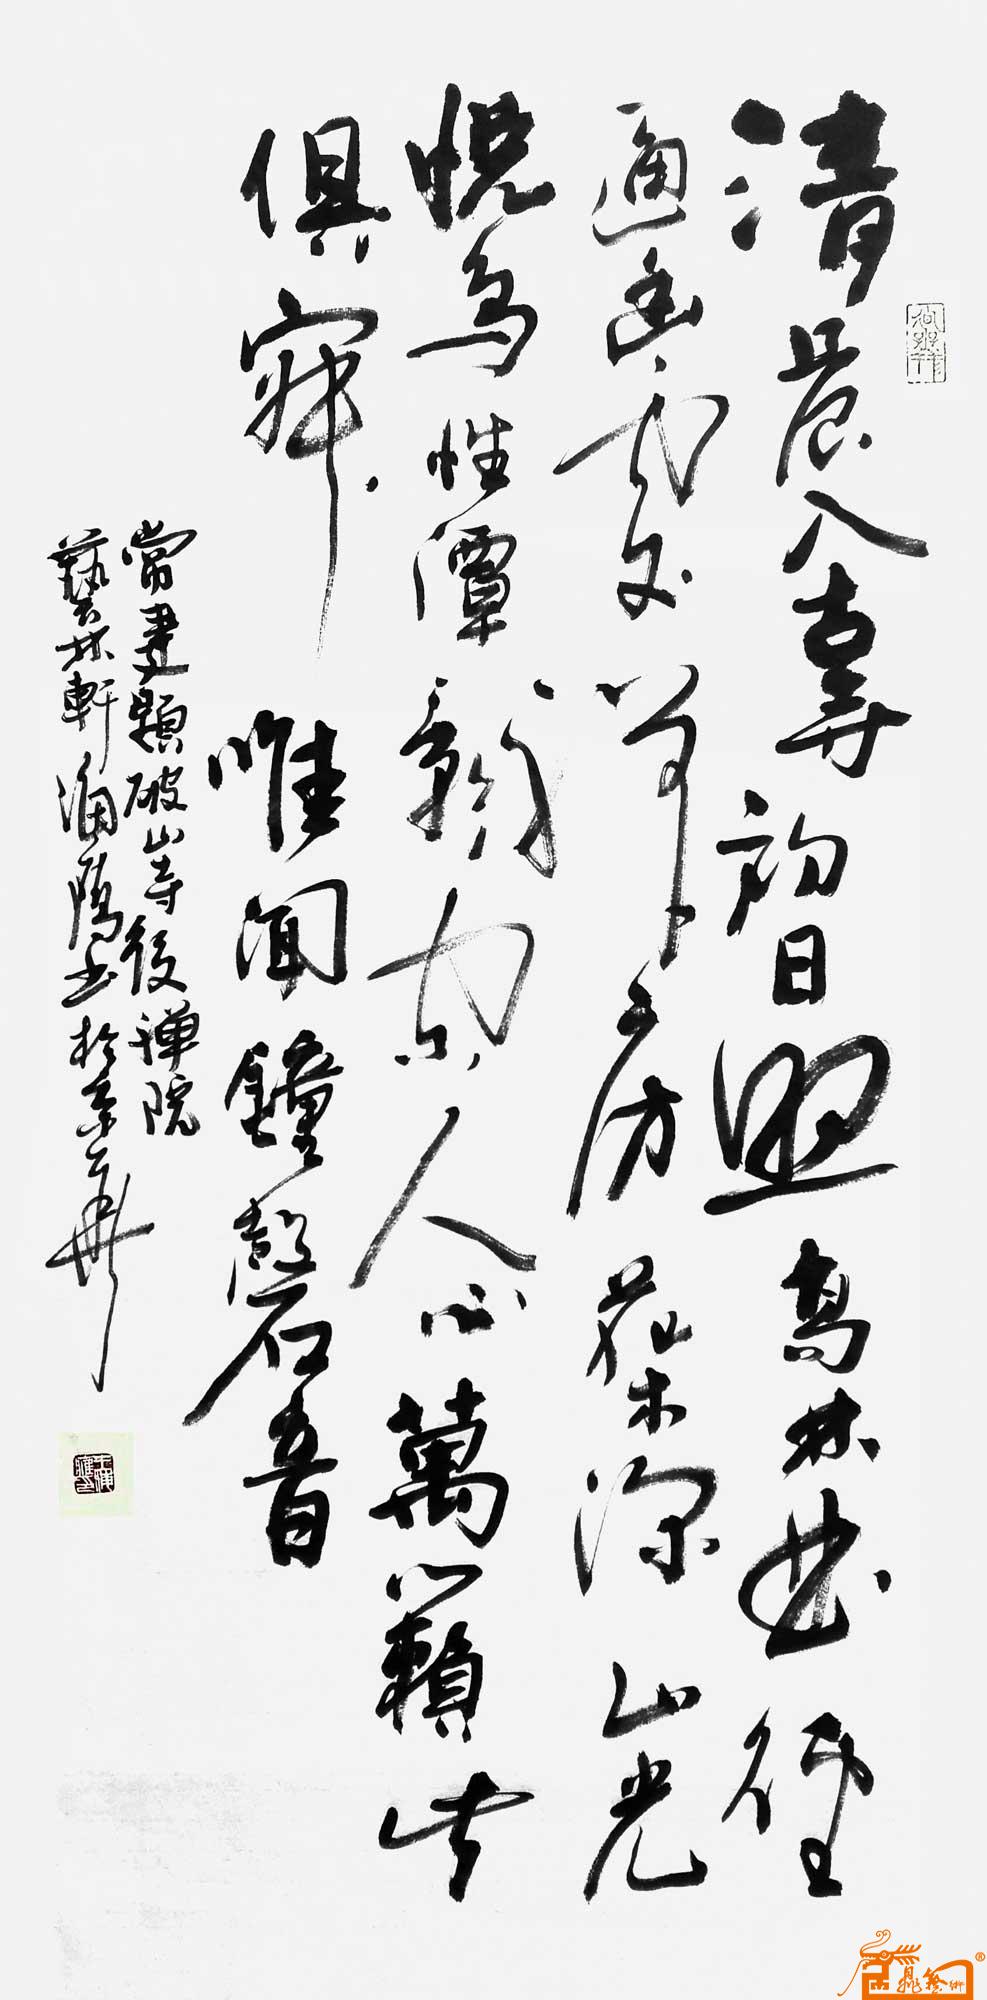 清晨入古寺初日照高林曲徑
通幽處禪房花木深山光
悅鳥性潭影空人心萬籟此
俱寂唯聞鐘磬音
常建題破山寺後禪院
藝林軒海鷹書於京華